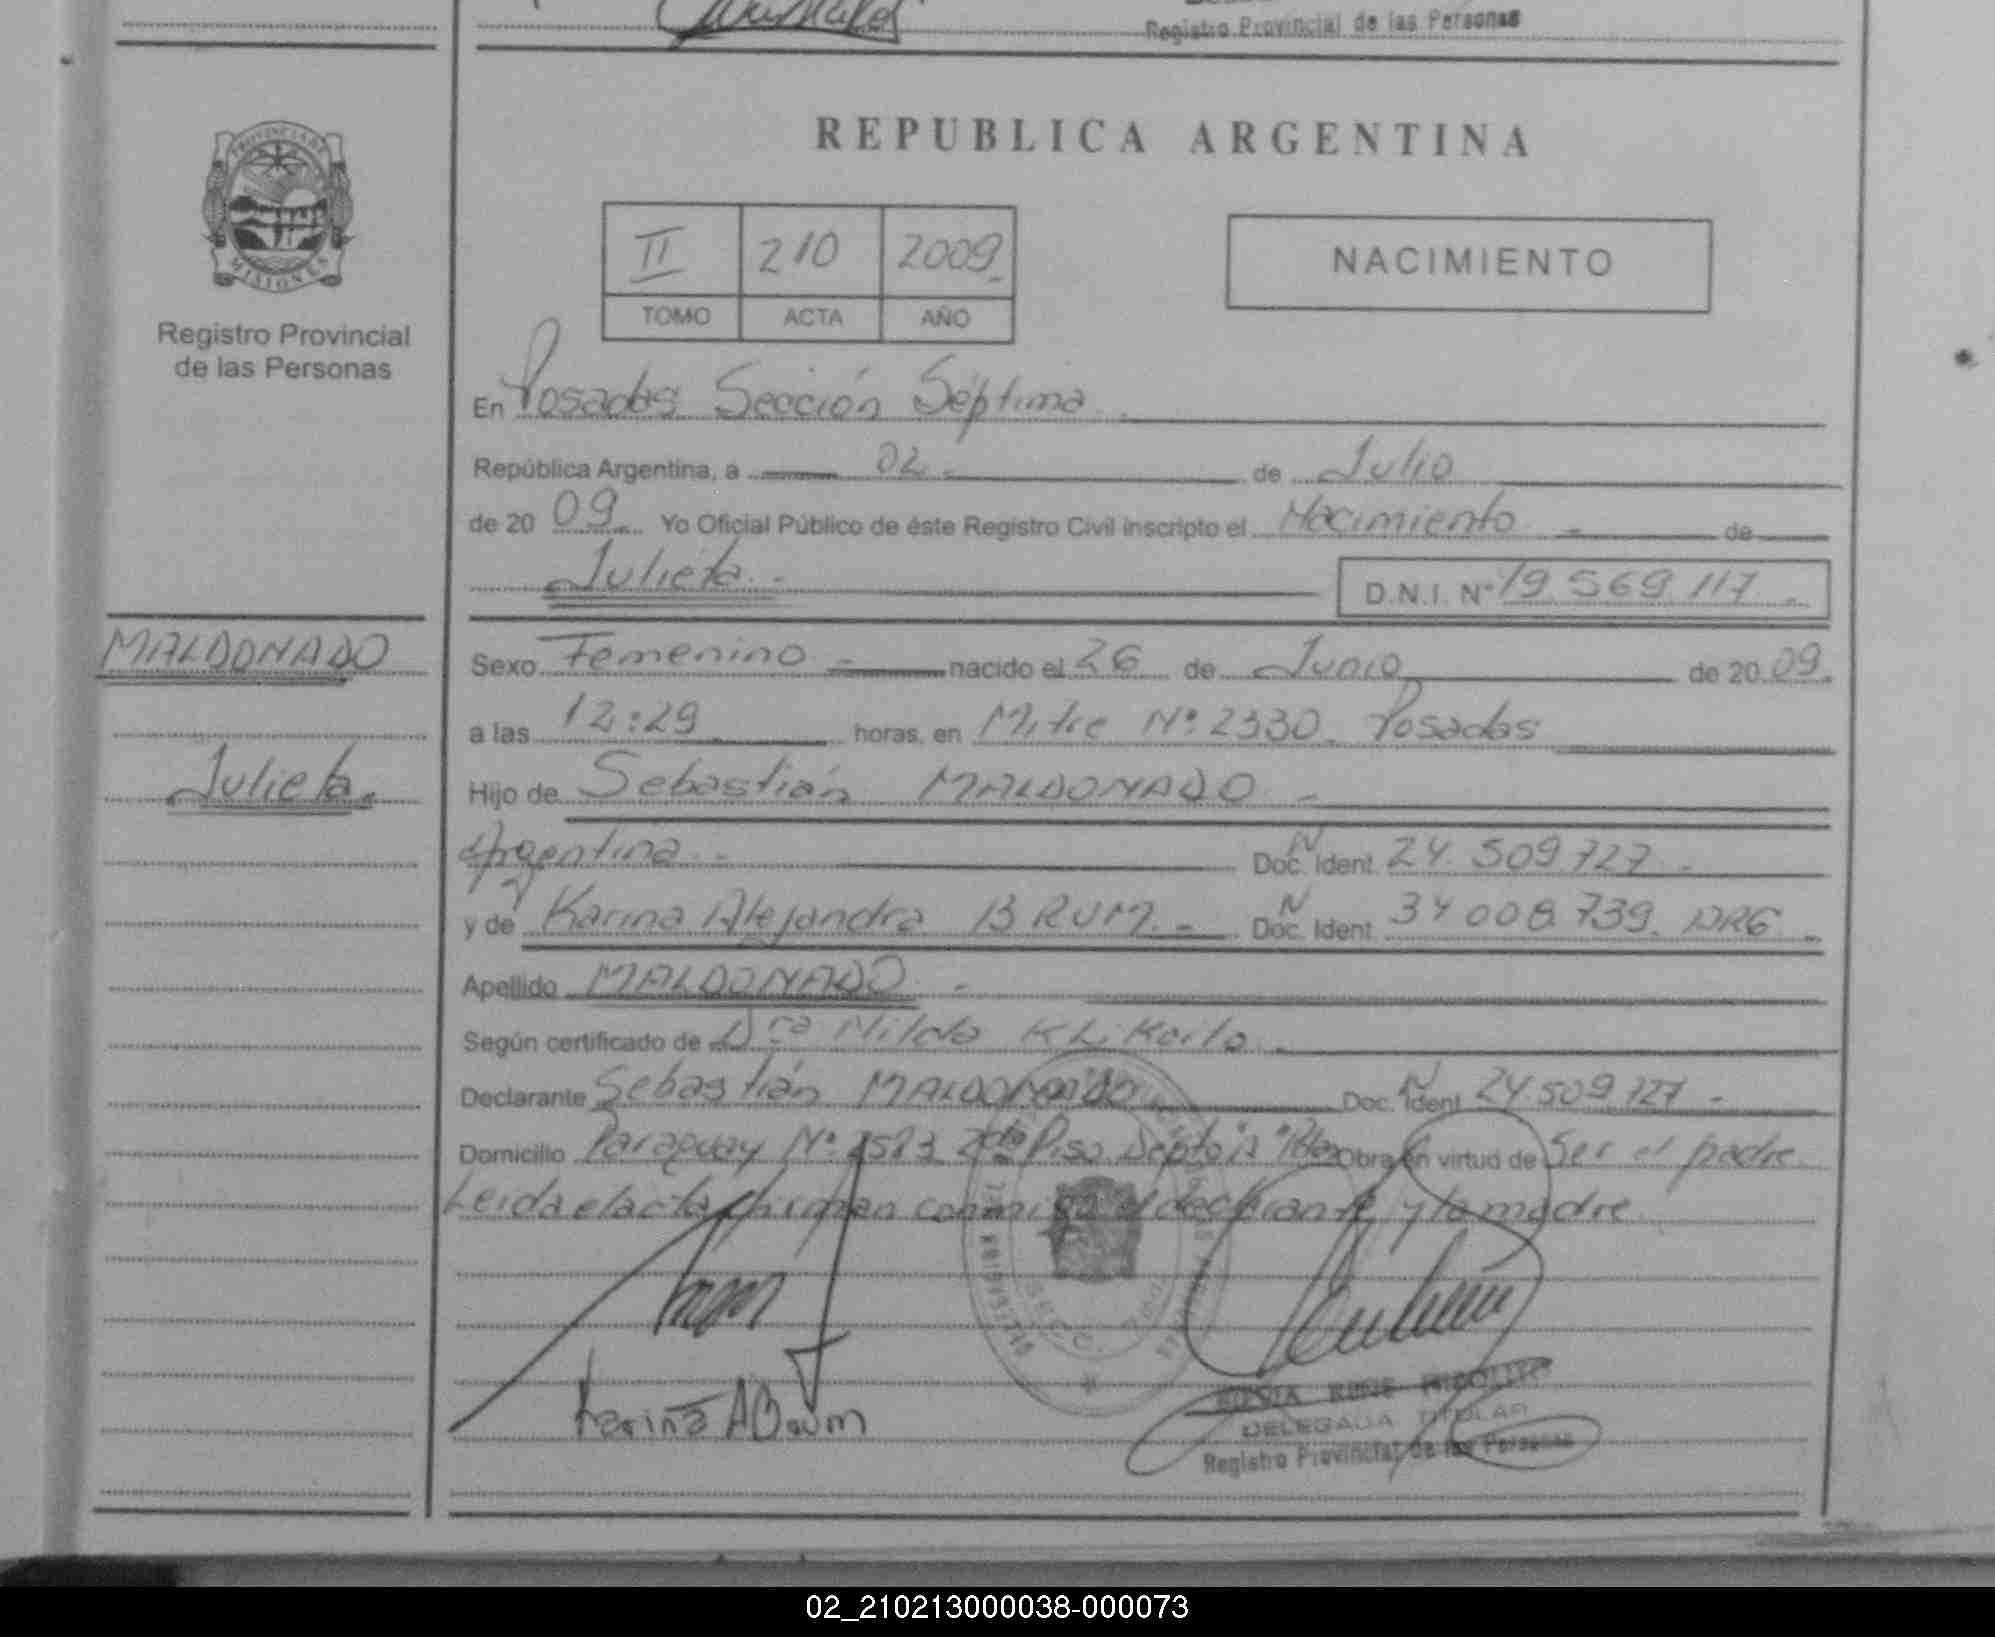 Registro Provincial de las Personas
REPUBLICA ARGENTINA
PROVINCIA DE
MISIONES
Registro Provincial
de las Personas
II 210 2009
TOMO ACTA AÑO
NACIMIENTO
En Posadas Sección Séptima
República Argentina, a 02 de Julio
de 20 09 Yo Oficial Público de éste Registro Civil inscripto el Nacimiento de
Julieta D.N.I. Nº 19.569.117
MALDONADO
Julieta
Sexo Femenino nacido el 26 de Junio de 20 09
a las 12:29 horas, en Mitre Nº 2330. Posadas
Hijo de Sebastián MALDONADO
Argentina Doc. Ident. 24.509.727
y de Karina Alejandra BRUM Doc. Ident. 34.008.739. ARG
Apellido MALDONADO
Según certificado de Dra Milda
Declarante Sebastián MALDONADO Doc. Ident. 24.509.727
Domicilio Paraguay Nº 2do Piso Depto Obra en virtud de Ser el padre
Leida el acta firman conmigo el declarante y la madre
Karina A Brum
DELEGADA TITULAR
Registro Provincial de las Personas
02_210213000038-000073